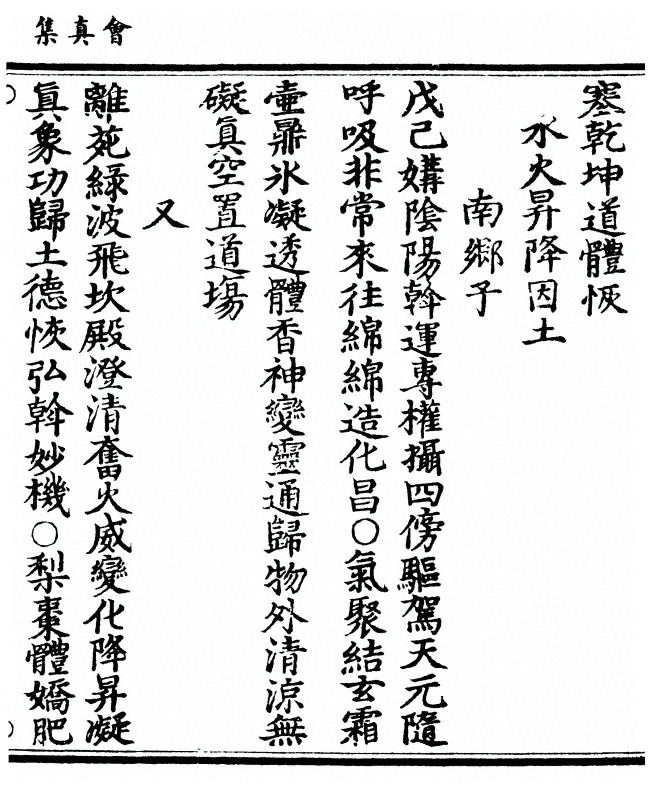 會真集
塞乾坤道體恢
水火昇降因土
南鄉子
戊己媾陰陽斡運專權攝四傍驅駕天元隨
呼吸非常來往綿綿造化昌○氣聚結玄霜
壷鼎氷凝透體香神變靈通歸物外清涼無
礙真空置道塲
又
離苑緑波飛坎殿澄清奮火威變化降昇凝
眞象功歸土德恢弘斡妙機○梨棗體嬌肥